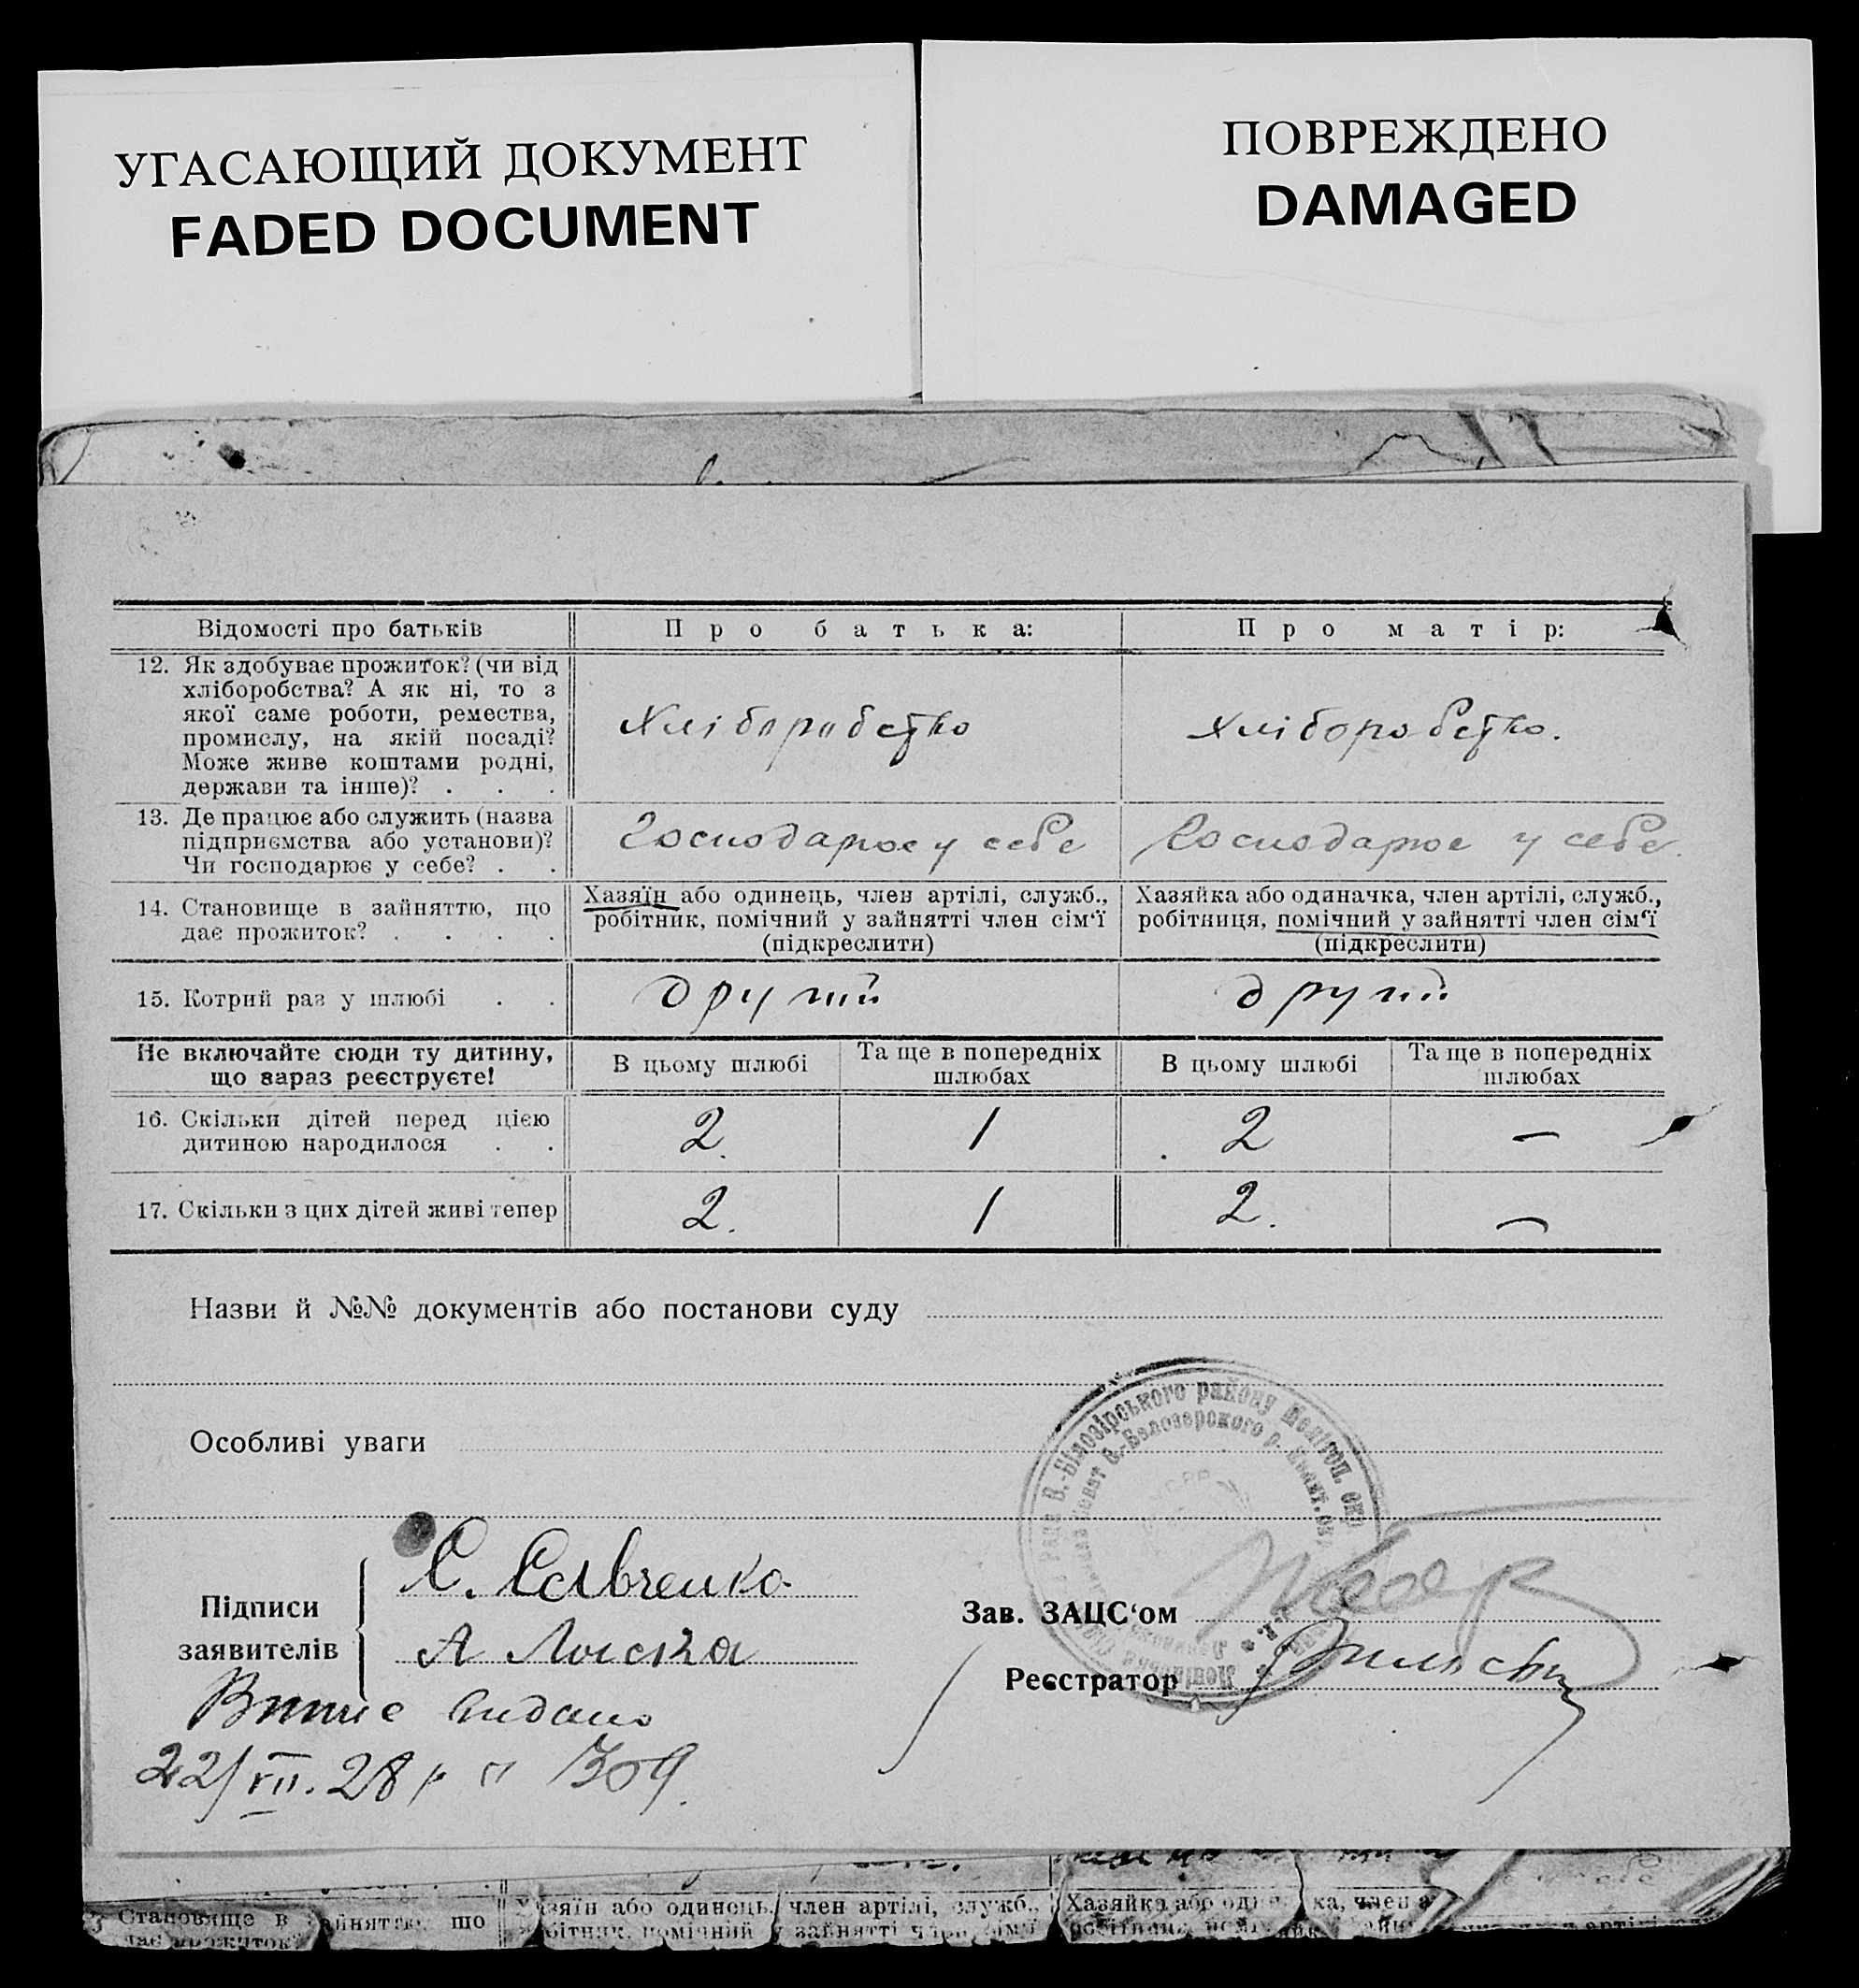 УГАСАЮЩИЙ ДОКУМЕНТ
FADED DOCUMENT
ПОВРЕЖДЕНО
DAMAGED
Відомості про батьків
Про батька:
Про матір:
12. Як здобуває прожиток? (чи від
хліборобства? А як ні, то з
якої саме роботи, ремества,
промислу, на якій посаді?
Може живе коштами родні,
держави та інше)? . . .
Хліборобство
Хліборобство.
13. Де працює або служить (назва
підприємства або установи)?
Чи господарює у себе? . .
Господарює у себе
Господарює у себе.
14. Становище в зайняттю, що
дає прожиток? . . . .
Хазяїн або одинець, член артілі, служб.,
робітник, помічний у зайнятті член сім‘ї
(підкреслити)
Хазяйка або одиначка, член артілі, служб.,
робітниця, помічний у зайнятті член сім‘ї
(підкреслити)
15. Котрий раз у шлюбі . .
другий
другий
Не включайте сюди ту дитину,
що зараз реєструєте!
В цьому шлюбі
Та ще в попередніх
шлюбах
В цьому шлюбі
Та ще в попередніх
шлюбах
16. Скільки дітей перед цією
дитиною народилося . .
2.
1
2
—
17. Скільки з цих дітей живі тепер
2.
1
2.
—
Назви й №№ документів або постанови суду
Особливі уваги
В.-Білозірського району Мелітоп. окр
В.-Белозерского р.
Підписи
заявителів
С. Савченко
А Лиска
Зав. ЗАЦС‘ом
Реєстратор
Витяг видано
22/VII. 28 р 309.
Становище в зайняттю, що
дає прожиток?
Хазяїн або одинець, член артілі, служб.,
робітник, помічний у зайнятті член сім‘ї
Хазяйка або